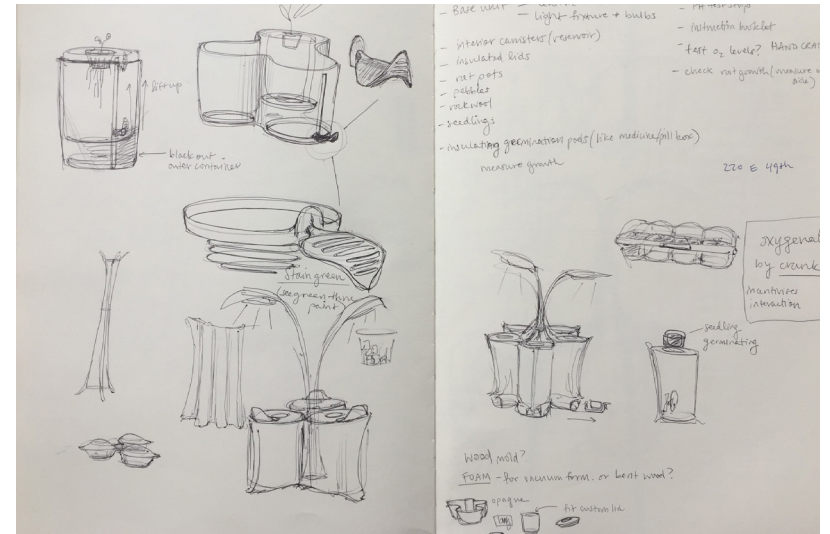 lift up
black out
outer container
Stain green
(see green thru
paint)
- Base unit
- light fixture + bulbs
- interior canisters (reservoir)
- insulated lids
- net pots
- pebbles
- rockwool
- seedlings
- insulating germination pods (like medicine/pill box)
measure growth
- instruction booklet
- test O2 levels? HAND CRA
- check root growth (measure
side)
220 E 49th
oxygena
by crank
incentivizes
interaction
seedling
germinating
Wood mold?
FOAM - for vacuum form. or bent wood?
opaque
fit